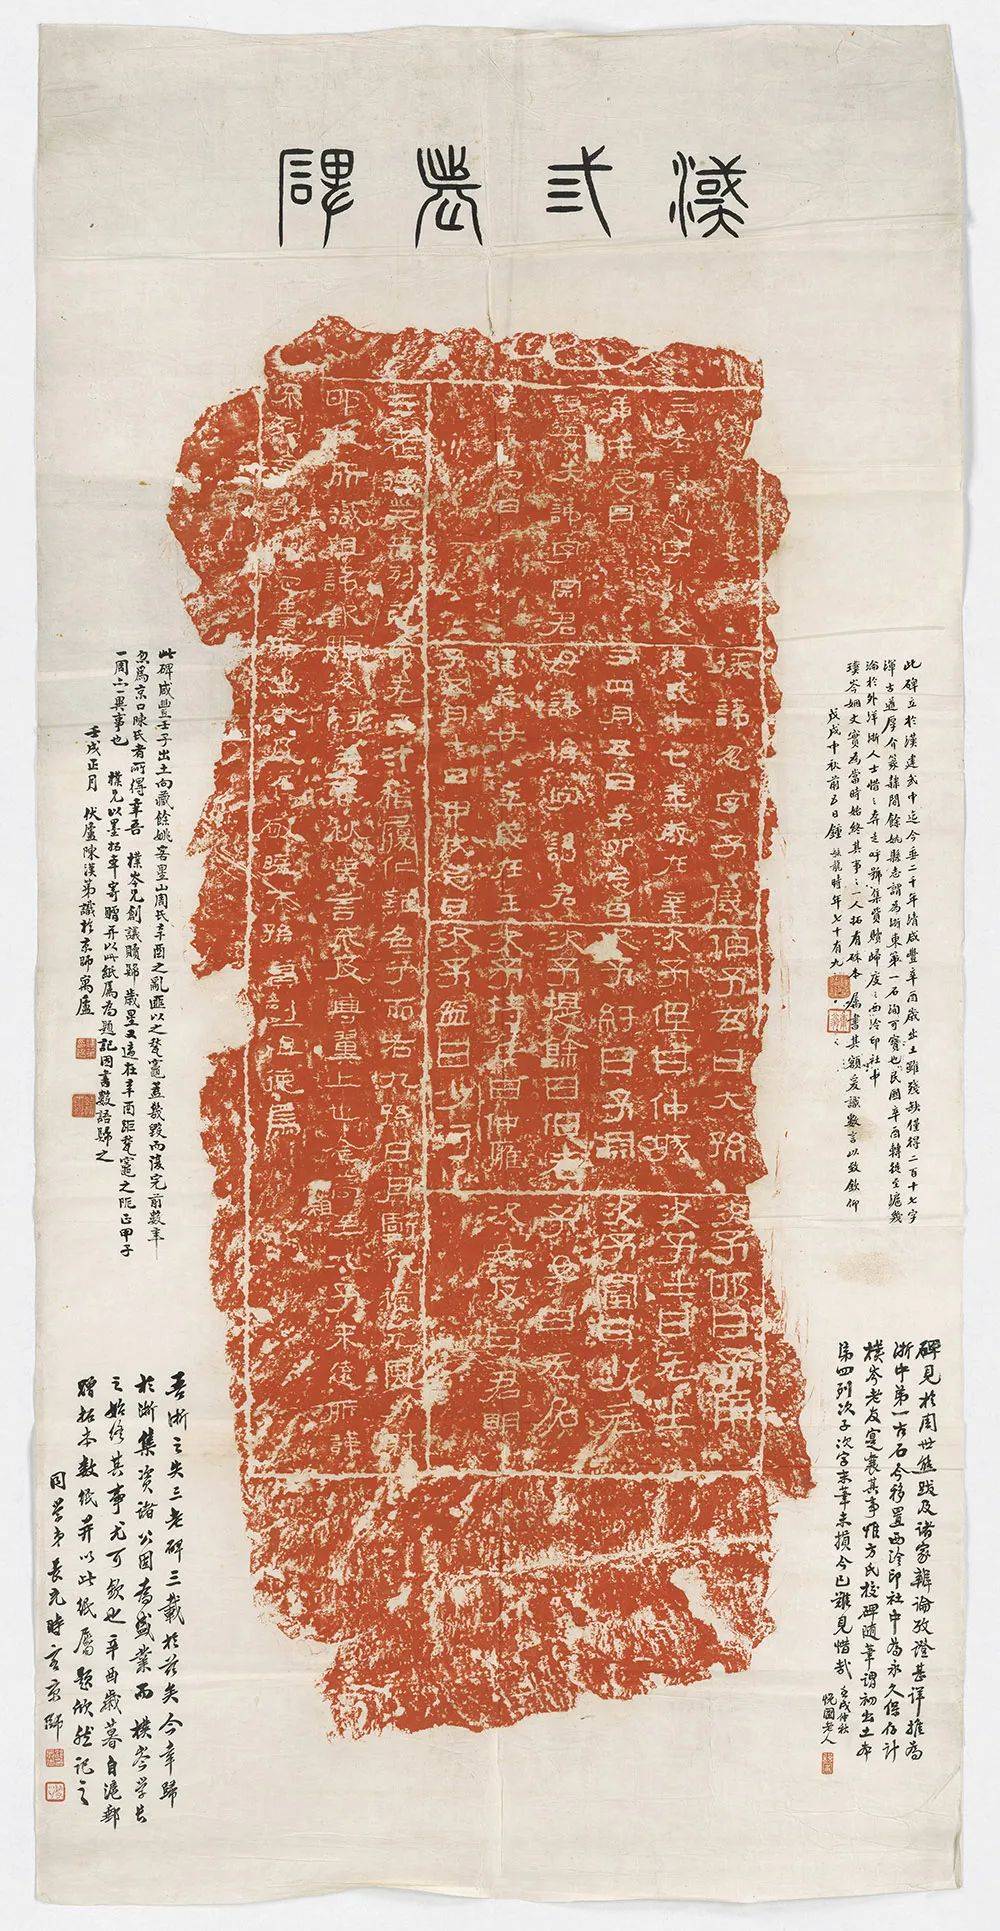 漢弎老碑
三老諱通字小父
庚午忌日
祖母失諱字宗君
癸未忌日
掾諱忽字子儀
建武十七年歲在辛
丑四月五日辛卯忌日
母諱捐字謁君
建武廿八年歲在壬
子五月十日甲戌忌日
伯子玄曰大孫
次子但曰仲城
次子紆曰子淵
次子提餘曰伯老
次子持侯曰仲廱
次子盈曰少河
次子邯曰子南
次子士曰元士
次子富曰少元
子女曰无名
次女反曰君明
三老德業赫烈克命先己汁稽履仁難名兮而右九孫日月虧代猶元風力射
及所識祖諱欽顯後嗣蓋春秋義言不及尊翼上也念高祖至九子未遠所諱
不列言事觸忌貴所出嚴及焦敬曉末孫冀副祖德焉
此碑立於漢建武中迄今垂二千年清咸豐辛酉歲出土雖殘缺僅得二百十七字
渾古遒厚介篆隸間餘姚縣志謂為浙東第一石詢可寶也民國辛酉轉徙至滬幾
淪於外洋浙人士惜之奔走呼號集貲贖歸庋之西泠印社中
璞岑姻丈實為當時始終其事之一人拓有硃本屬書其額爰識數言以致欽仰
戊戌中秋前五日鍾毓龍時年七十有九
碑見於周世熊跋及諸家辨論攷證甚詳推為
浙中第一古石今移置西泠印社中為永久保存計
樸岑老友寔襄其事惟方氏校碑隨筆謂初出土本
第四列次子次字末筆未損今已難見惜哉 壬戌仲秋
悅園老人
此碑咸豐壬子出土向藏餘姚客星山周氏辛酉之亂匪以之甃竈蓋幾毀而後完前數年
忽為京口陳氏者所得幸吾 樸岑兄創議贖歸歲星又適在辛酉距甃竈之阨正甲子
一周亦一異事也 樸兄以墨拓本寄贈并以此紙屬為題記因書數語歸之
壬戌正月 伏廬陳漢第識於京師寓廬
吾浙之失三老碑三載於茲矣今幸歸
於浙集資諸公固為盛業而樸岑學長
之始終其事尤可欽也辛酉歲暮自滬郵
贈拓本數紙并以此紙屬題欣然記之
同學弟長元時客京師